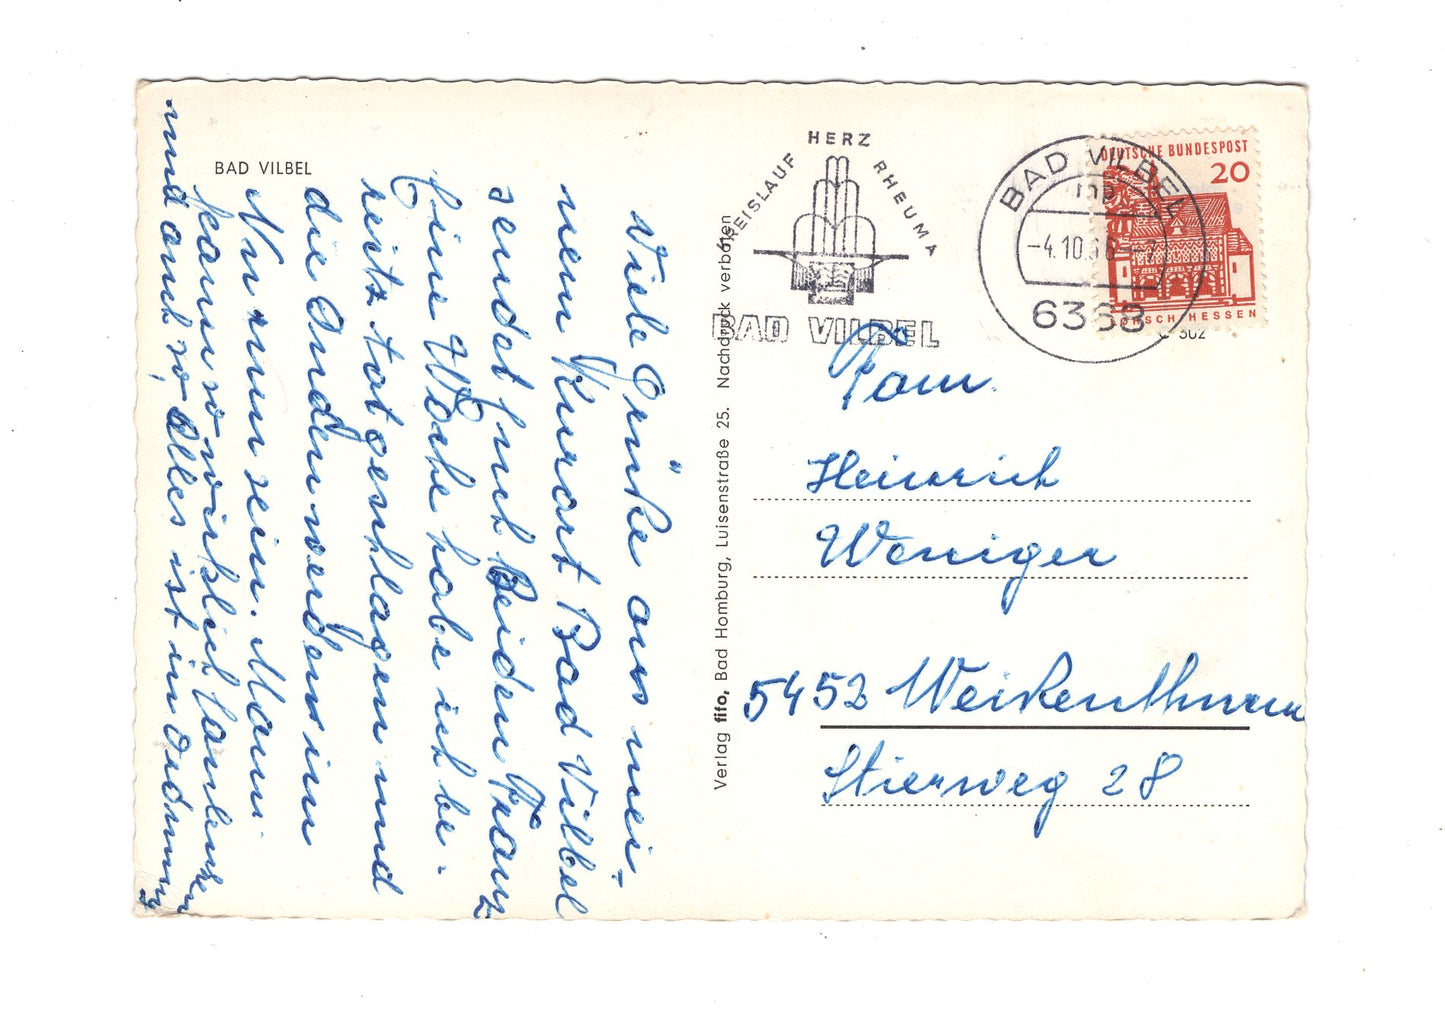 BAD VILBEL
Viele Grüße aus mei-
nem Kurort Bad Vilbel
sendet Euch Beiden Franz
Eine Woche habe ich be-
reits totgeschlagen und
die Anderen werdens im
Nu rum sein. Mann
kann so wirklich faulenzen
und auch so, alles ist in Ordnung
Verlag fifo, Bad Homburg, Luisenstraße 25. Nachdruck verboten
KREISLAUF HERZ RHEUMA
BAD VILBEL
BAD VILBEL
mp
-4.10.66-
6368
DEUTSCHE BUNDESPOST
20
LORSCH HESSEN
502
Fam.
Heinrich
Weniger
5452 Weißenthurm
Stierweg 28